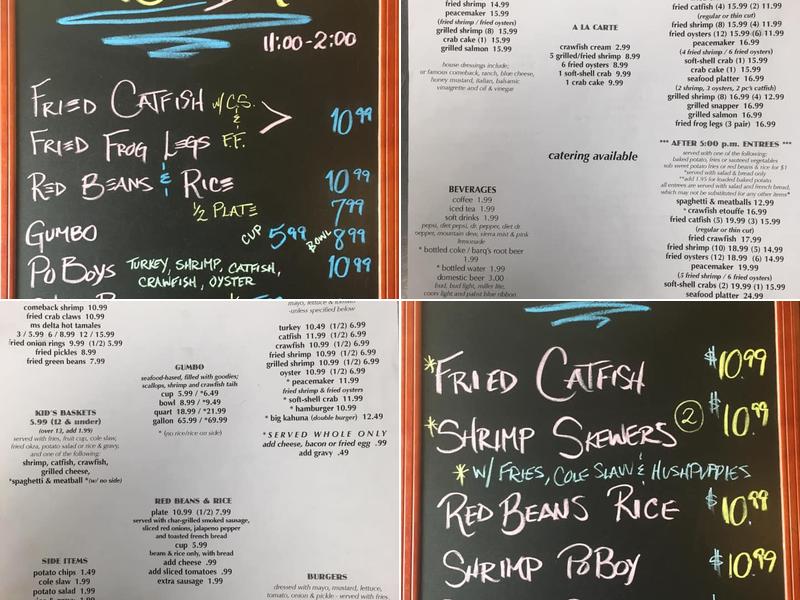 11:00-2:00
FRIED CATFISH w/ C.S.
&
FRIED FROG LEGS F.F.
10 99
RED BEANS & RICE 10 99
1/2 PLATE 7 99
GUMBO CUP 5 99 BOWL 8 99
PO BOYS TURKEY, SHRIMP, CATFISH, 10 99
CRAWFISH, OYSTER
fried shrimp 14.99
peacemaker 15.99
(fried shrimp / fried oysters)
grilled shrimp (8) 15.99
crab cake (1) 15.99
grilled salmon 15.99
house dressings include;
or famous comeback, ranch, blue cheese,
honey mustard, italian, balsamic
vinaigrette and oil & vinegar
BEVERAGES
coffee 1.99
iced tea 1.99
soft drinks 1.99
pepsi, diet pepsi, dr. pepper, diet dr.
pepper, mountain dew, sierra mist & pink
lemonade
* bottled coke / barq's root beer
1.99
* bottled water 1.99
domestic beer 3.00
bud, bud light, miller lite,
coors light and pabst blue ribbon
A LA CARTE
crawfish cream 2.99
5 grilled/fried shrimp 8.99
6 fried oysters 8.99
1 soft-shell crab 9.99
1 crab cake 9.99
catering available
fried catfish (4) 15.99 (2) 11.99
(regular or thin cut)
fried shrimp (8) 15.99 (4) 11.99
fried oysters (12) 15.99 (6) 11.99
peacemaker 16.99
(4 fried shrimp / 6 fried oysters)
soft-shell crab (1) 15.99
crab cake (1) 15.99
seafood platter 16.99
(2 shrimp, 3 oysters, 2 pc's catfish)
grilled shrimp (8) 16.99 (4) 12.99
grilled snapper 16.99
grilled salmon 16.99
fried frog legs (3 pair) 16.99
*** AFTER 5:00 p.m. ENTREES ***
served with one of the following:
baked potato, fries or sauteed vegetables
sub sweet potato fries or red beans & rice for $1
*served with salad & bread only
**add 1.95 for loaded baked potato
all entrees are served with salad and french bread,
which may not be substituted for any other items*
spaghetti & meatballs 12.99
* crawfish etouffe 16.99
fried catfish (5) 19.99 (3) 15.99
(regular or thin cut)
fried crawfish 17.99
fried shrimp (10) 18.99 (9) 14.99
fried oysters (12) 18.99 (6) 14.99
peacemaker 19.99
(5 fried shrimp / 6 fried oysters)
soft-shell crabs (2) 19.99 (1) 15.99
seafood platter 24.99
comeback shrimp 10.99
fried crab claws 10.99
ms delta hot tamales
3 / 5.99 6 / 8.99 12 / 15.99
fried onion rings 9.99 (1/2) 5.99
fried pickles 8.99
fried green beans 7.99
KID'S BASKETS
5.99 (12 & under)
(over 12, add 1.99)
served with fries, fruit cup, cole slaw,
fried okra, potato salad or rice & gravy,
and one of the following:
shrimp, catfish, crawfish,
grilled cheese,
*spaghetti & meatball *(w/ no side)
SIDE ITEMS
potato chips 1.49
cole slaw 1.99
potato salad 1.99
GUMBO
seafood-based, filled with goodies;
scallops, shrimp and crawfish tails
cup 5.99 /*6.49
bowl 8.99 /*9.49
quart 18.99 /*21.99
gallon 65.99 /*69.99
* (no rice/rice on side)
RED BEANS & RICE
plate 10.99 (1/2) 7.99
served with char-grilled smoked sausage,
sliced red onions, jalapeno pepper
and toasted french bread
cup 5.99
beans & rice only, with bread
add cheese .99
add sliced tomatoes .99
extra sausage 1.99
mayo, lettuce & tomato
-unless specified below
turkey 10.49 (1/2) 6.99
catfish 11.99 (1/2) 6.99
crawfish 10.99 (1/2) 6.99
fried shrimp 10.99 (1/2) 6.99
grilled shrimp 10.99 (1/2) 6.99
oyster 10.99 (1/2) 6.99
* peacemaker 11.99
fried shrimp & fried oysters
* soft-shell crab 11.99
* hamburger 10.99
* big kahuna (double burger) 12.49
*SERVED WHOLE ONLY
add cheese, bacon or fried egg .99
add gravy .49
BURGERS
dressed with mayo, mustard, lettuce,
tomato, onion & pickle - served with fries
*FRIED CATFISH $10.99
*SHRIMP SKEWERS (2) $10.99
* W/ FRIES, COLE SLAW & HUSHPUPPIES
RED BEANS & RICE $10.99
SHRIMP PO BOY $10.99